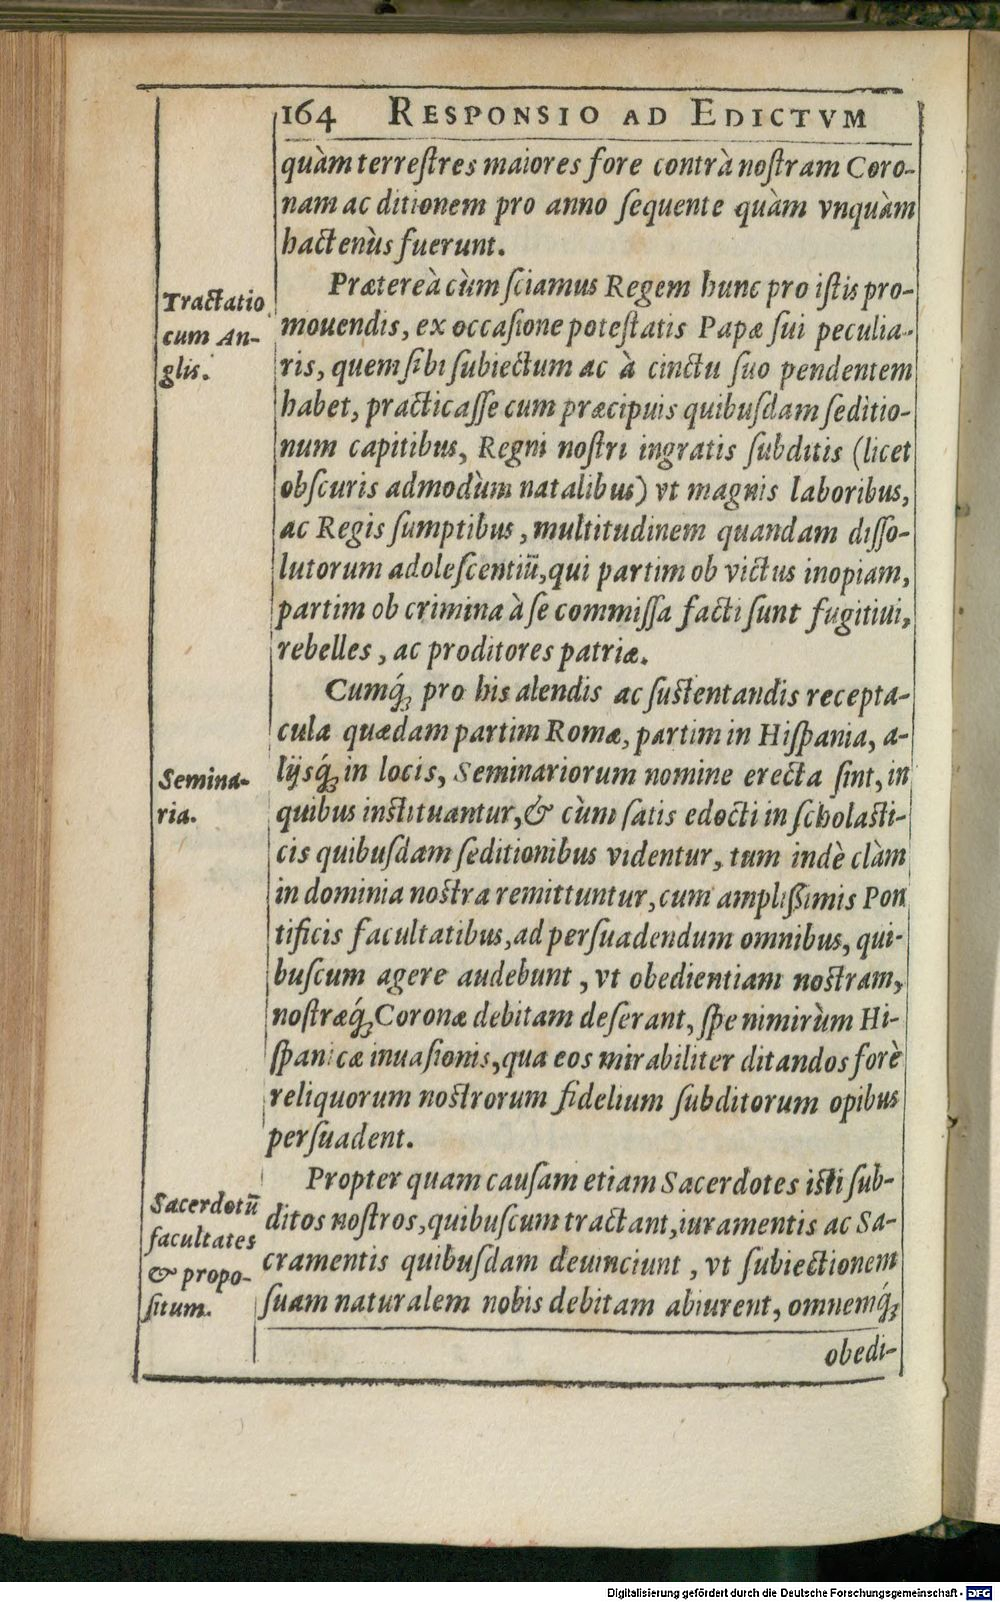 164 RESPONSIO AD EDICTVM
quàm terreſtres maiores fore contrà noſtram Coro-
nam ac ditionem pro anno ſequente quàm vnquàm
hactenùs fuerunt.
Tractatio
cum An-
glis.
Prætereà cùm ſciamus Regem hunc pro iſtis pro-
mouendis, ex occaſione poteſtatis Papæ ſui peculia-
ris, quem ſibi ſubiectum ac à cinctu ſuo pendentem
habet, practicaſſe cum præcipuis quibuſdam ſeditio-
num capitibus, Regni noſtri ingratis ſubditis (licet
obſcuris admodùm natalibus) vt magnis laboribus,
ac Regis ſumptibus, multitudinem quandam diſſo-
lutorum adoleſcentiū, qui partim ob victus inopiam,
partim ob crimina à ſe commiſſa facti ſunt fugitiui,
rebelles, ac proditores patriæ.
Semina-
ria.
Cumq́; pro his alendis ac ſuſtentandis recepta-
cula quædam partim Romæ, partim in Hiſpania, a-
lijsq́; in locis, Seminariorum nomine erecta ſint, in
quibus inſtituantur, & cùm ſatis edocti in ſcholaſti-
cis quibuſdam ſeditionibus videntur, tum indè clàm
in dominia noſtra remittuntur, cum ampliſſimis Pon
tificis facultatibus, ad perſuadendum omnibus, qui-
buſcum agere audebunt, vt obedientiam noſtram,
noſtræq́; Coronæ debitam deſerant, ſpe nimirùm Hi-
ſpanicæ inuaſionis, qua eos mirabiliter ditandos forè
reliquorum noſtrorum fidelium ſubditorum opibus
perſuadent.
Sacerdotū
facultates
& propo-
ſitum.
Propter quam cauſam etiam Sacerdotes iſti ſub-
ditos noſtros, quibuſcum tractant, iuramentis ac Sa-
cramentis quibuſdam deuinciunt, vt ſubiectionem
ſuam naturalem nobis debitam abiurent, omnemq́;
obedi-
Digitalisierung gefördert durch die Deutsche Forschungsgemeinschaft - DFG